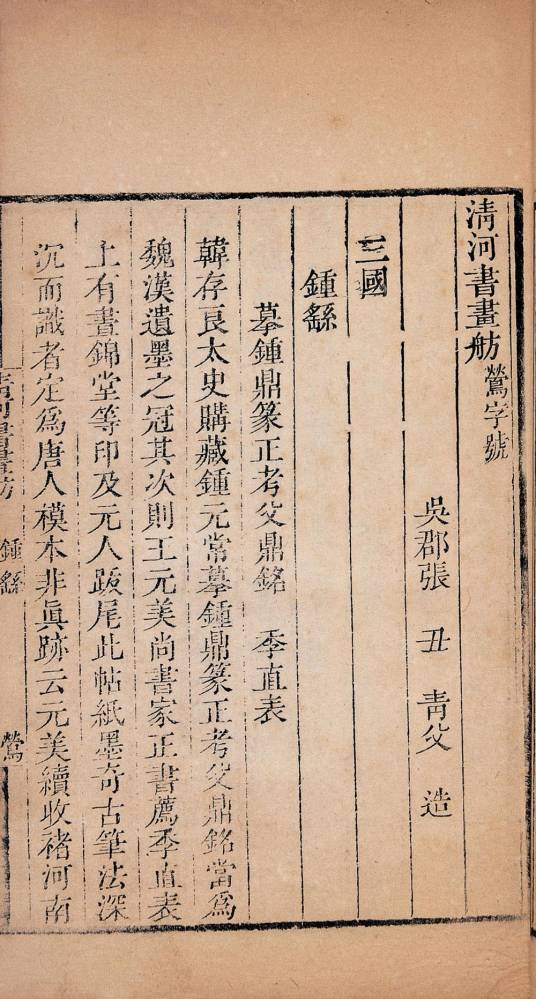 清河書畫舫 鶯字號
吳郡張 丑 青父 造
三國
鍾繇
摹鍾鼎篆正考父鼎銘 季直表
韓存良太史購藏鍾元常摹鍾鼎篆正考父鼎銘當爲
魏漢遺墨之冠其次則王元美尚書家正書薦季直表
上有晝錦堂等印及元人跋尾此帖紙墨奇古筆法深
沉而識者定爲唐人模本非眞跡云元美續收褚河南
清河書畫舫 鍾繇 鶯